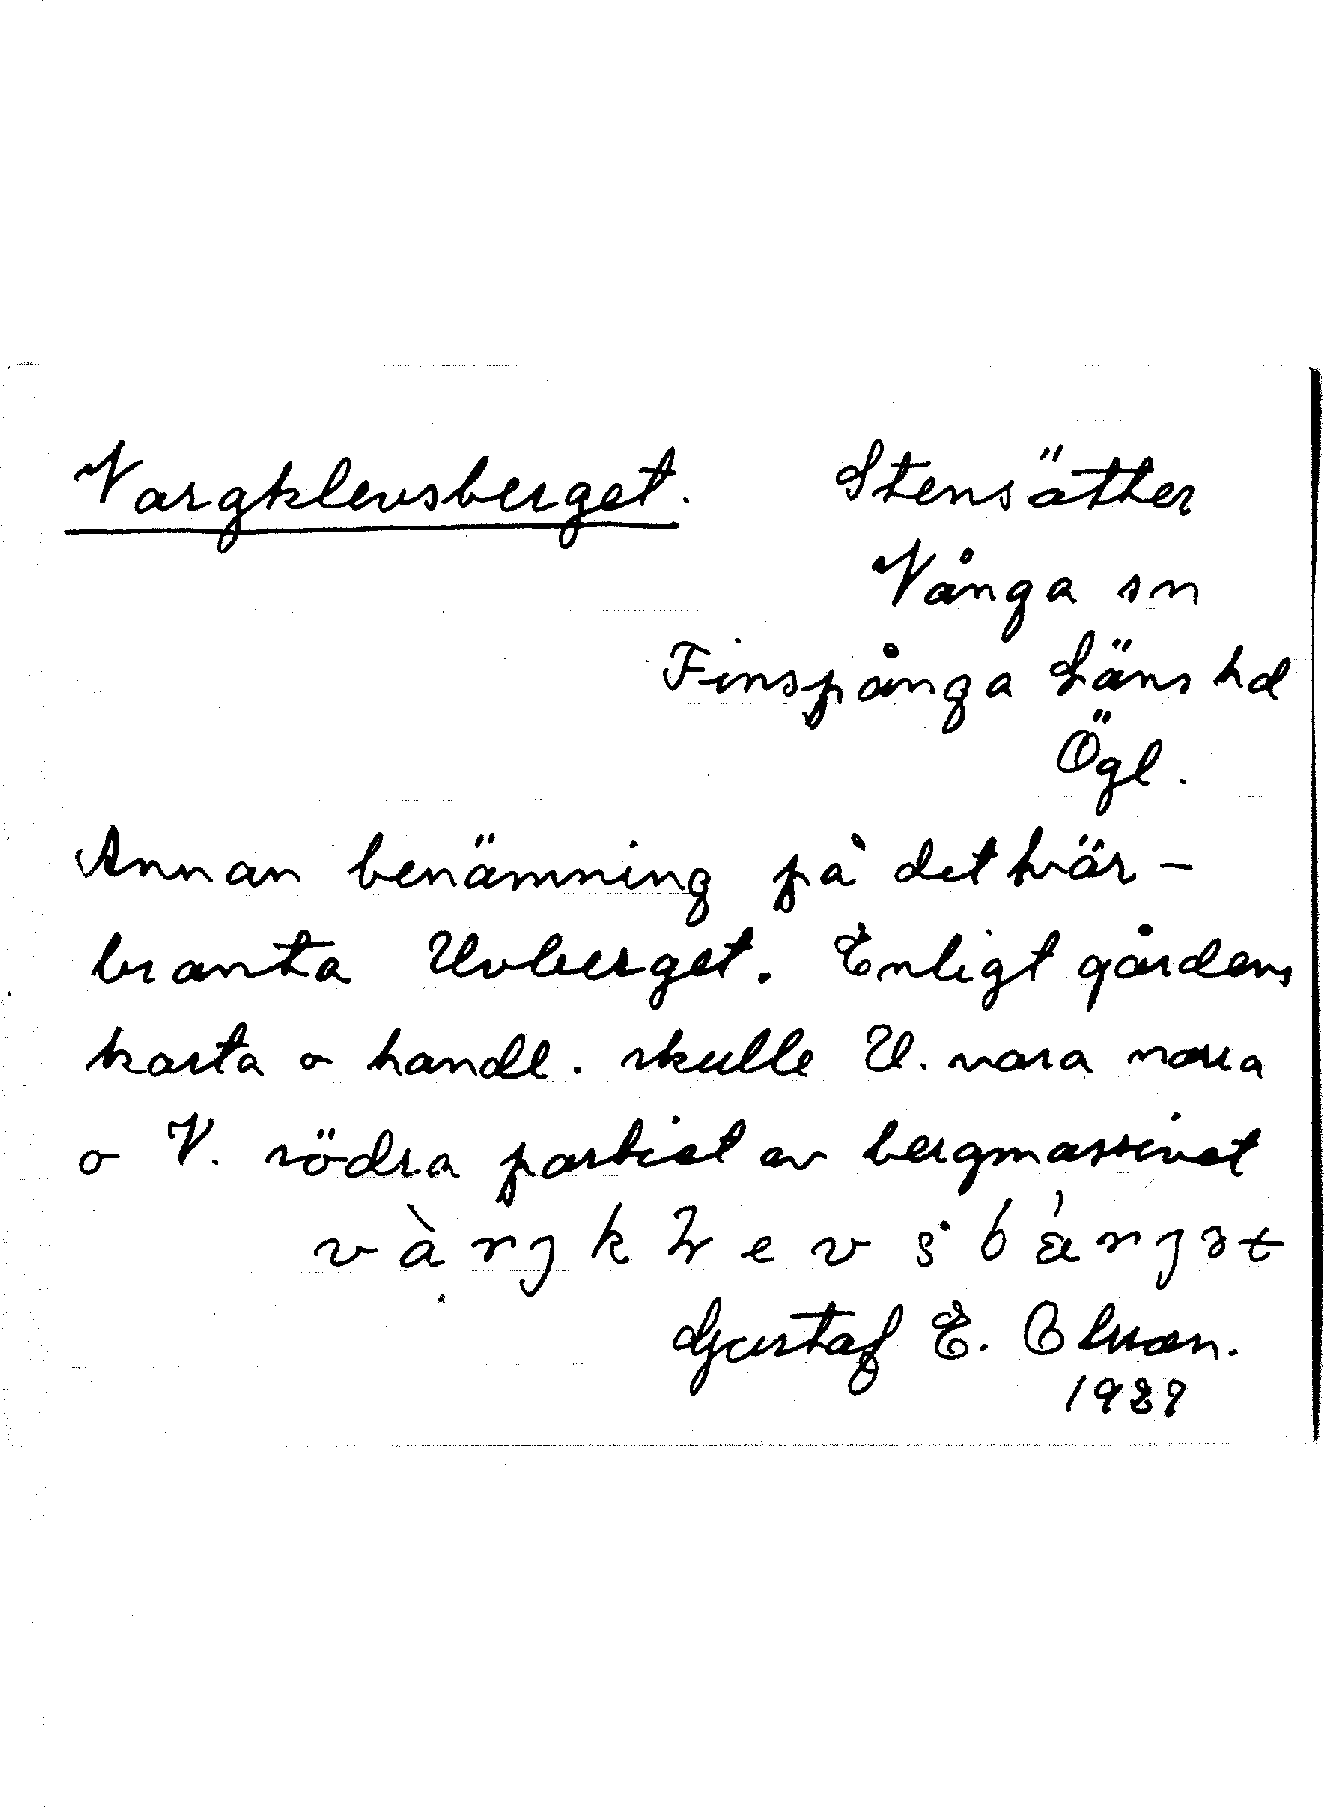 Vargklevsberget.
Stensätter
Vånga sn
Finspånga Läns hd
Ögl.
Annan benämning på det tvär-
branta Uvberget. Enligt gårdens
karta o handl. skulle U. vara norra
o V. södra partiet av bergmassivet
Gustaf E. Olsson.